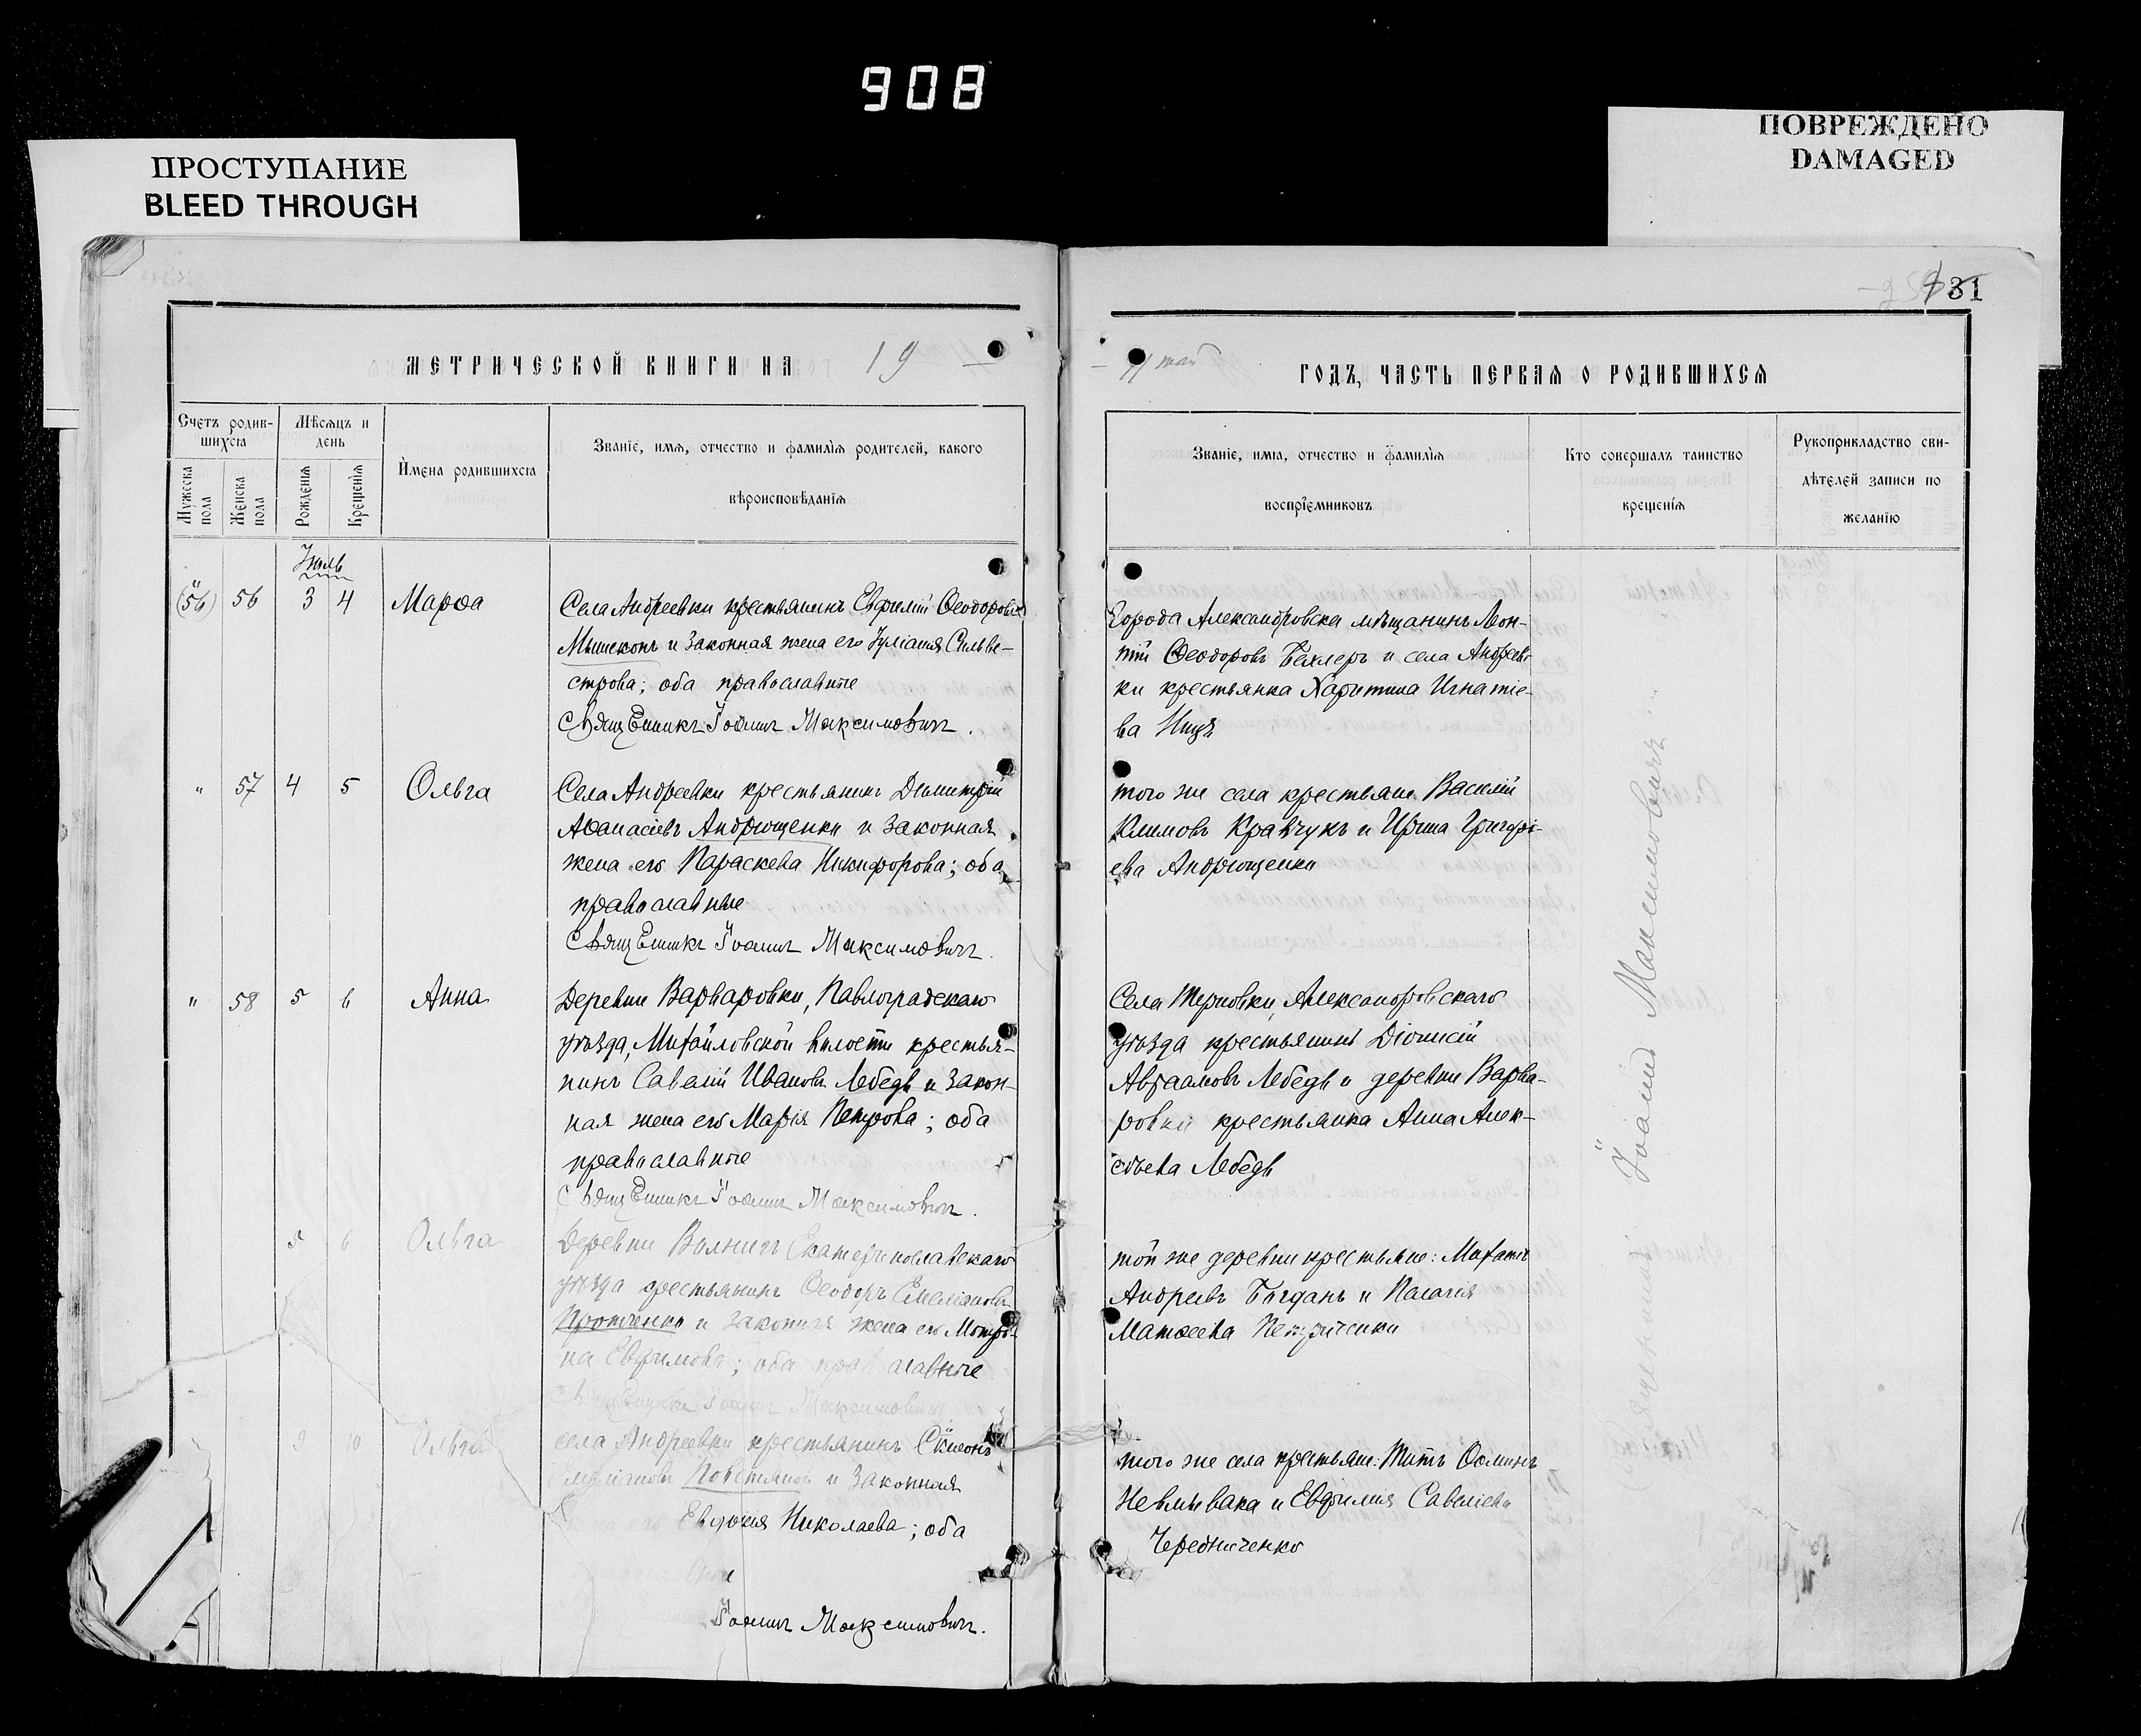 908
ПРОСТУПАНИЕ
BLEED THROUGH
ПОВРЕЖДЕНО
DAMAGED
31
МЕТРИЧЕСКОЙ КНИГИ НА 19
ГОДЪ, ЧАСТЬ ПЕРВАЯ О РОДИВШИХСЯ
Счетъ родив-
шихся
Мужеска
пола
Женска
пола
Мѣсяцъ и
день
Рожденія
Крещенія
Имена родившихся
Званіе, имя, отчество и фамилія родителей, какого
вѣроисповѣданія
Званіе, имя, отчество и фамилія
воспріемниковъ
Кто совершалъ таинство
крещенія
Рукоприкладство сви-
дѣтелей записи по
желанію
Іюль
(56) 56 3 4 Марѳа
Села Андреевки крестьянинъ Евфимій Ѳеодоровъ
и законная жена его Іуліанія Сильве-
строва; оба православные
Священникъ Іоаннъ Максимовичъ.
Города Александровска мѣщанинъ Леон-
тій Ѳеодоровъ и села Андреев-
ки крестьянка Харитина Игнатіе-
ва
" 57 4 5 Ольга
Села Андреевки крестьянинъ Димитрій
Аѳанасіевъ Андрющенко и законная
жена его Параскева Никифорова; оба
православные
Священникъ Іоаннъ Максимовичъ.
того же села крестьяне Василій
Климовъ Кравчукъ и Ирина Григорі-
ева Андрющенко
" 58 5 6 Анна
Деревни Варваровки, Павлоградскаго
уѣзда, Михайловской волости крестья-
нинъ Савелій Ивановъ Лебедь и закон-
ная жена его Марія Петрова; оба
православные
Священникъ Іоаннъ Максимовичъ.
Села Терновки, Александровскаго
уѣзда крестьянинъ Діонисій
Авраамовъ Лебедь и деревни Варва-
ровки крестьянка Анна Алек-
сѣева Лебедь
5 6 Ольга
Деревни Екатеринославскаго
уѣзда крестьянинъ Ѳеодоръ Емеліановъ
и законная жена его Матро-
на Евфимова; оба православные
Священникъ Іоаннъ Максимовичъ
той же деревни крестьяне:
Андреевъ Богданъ и Пелагія
Матѳеева
9 10 Ольга
села Андреевки крестьянинъ Сѵмеонъ
и законная
жена его Евдокія Николаева; оба
Іоаннъ Максимовичъ.
того же села крестьяне: Титъ
и Евфимія Савеліева
Чередниченко
Священникъ Іоаннъ Максимовичъ